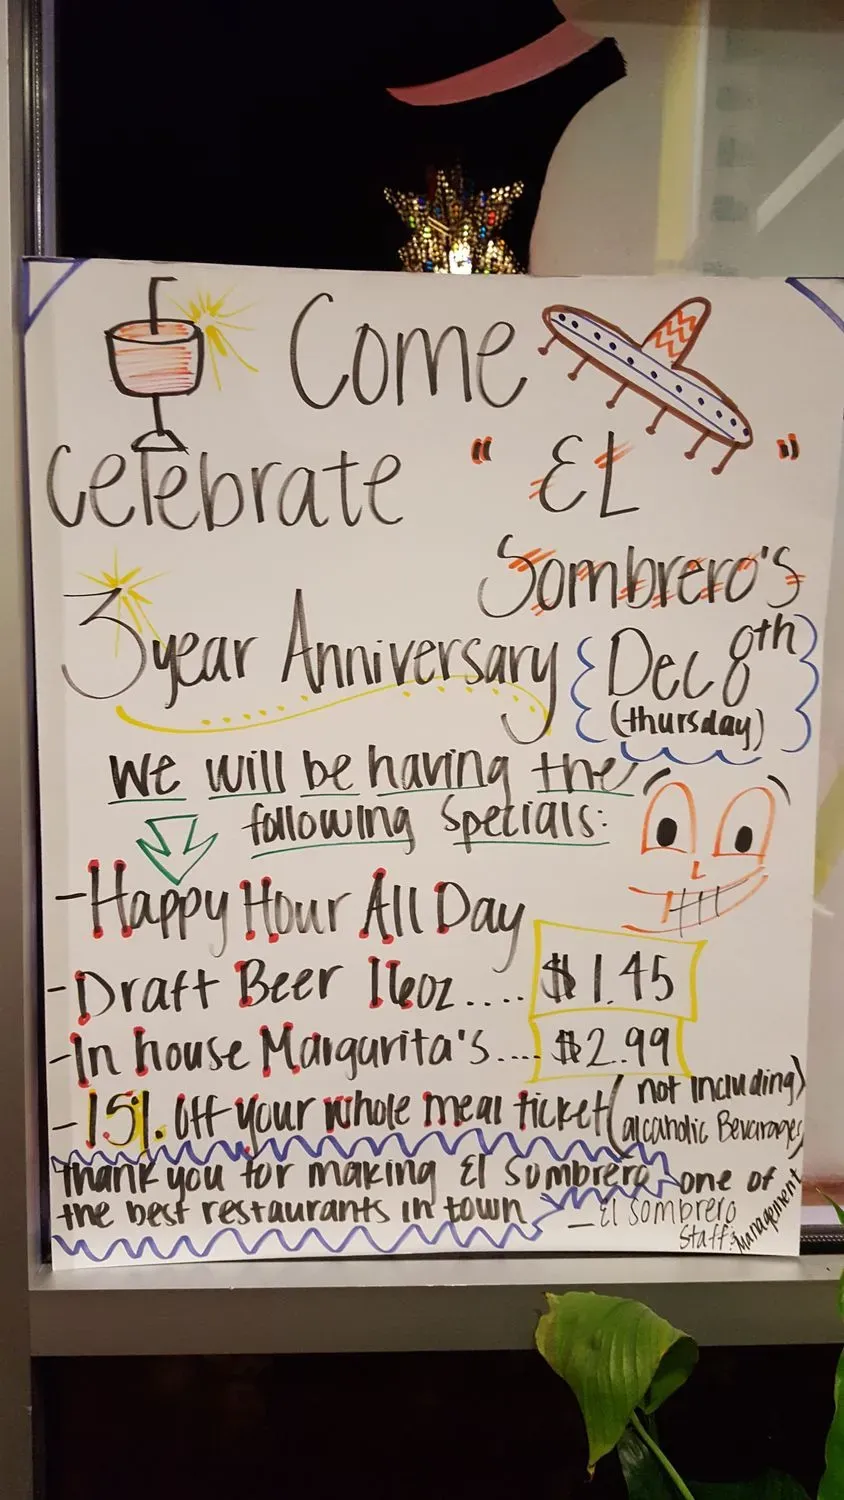 Come
Celebrate "EL"
Sombrero's
3 year Anniversary
Dec 8th
(thursday)
We will be having the
following Specials:
-Happy Hour All Day
-Draft Beer 16oz.... $1.45
-In house Margarita's.... $2.99
-15% Off your whole meal ticket (not including)
(alcaholic Beverages)
Thank you for making El Sombrero one of
the best restaurants in town
- El Sombrero
Staff &
Management